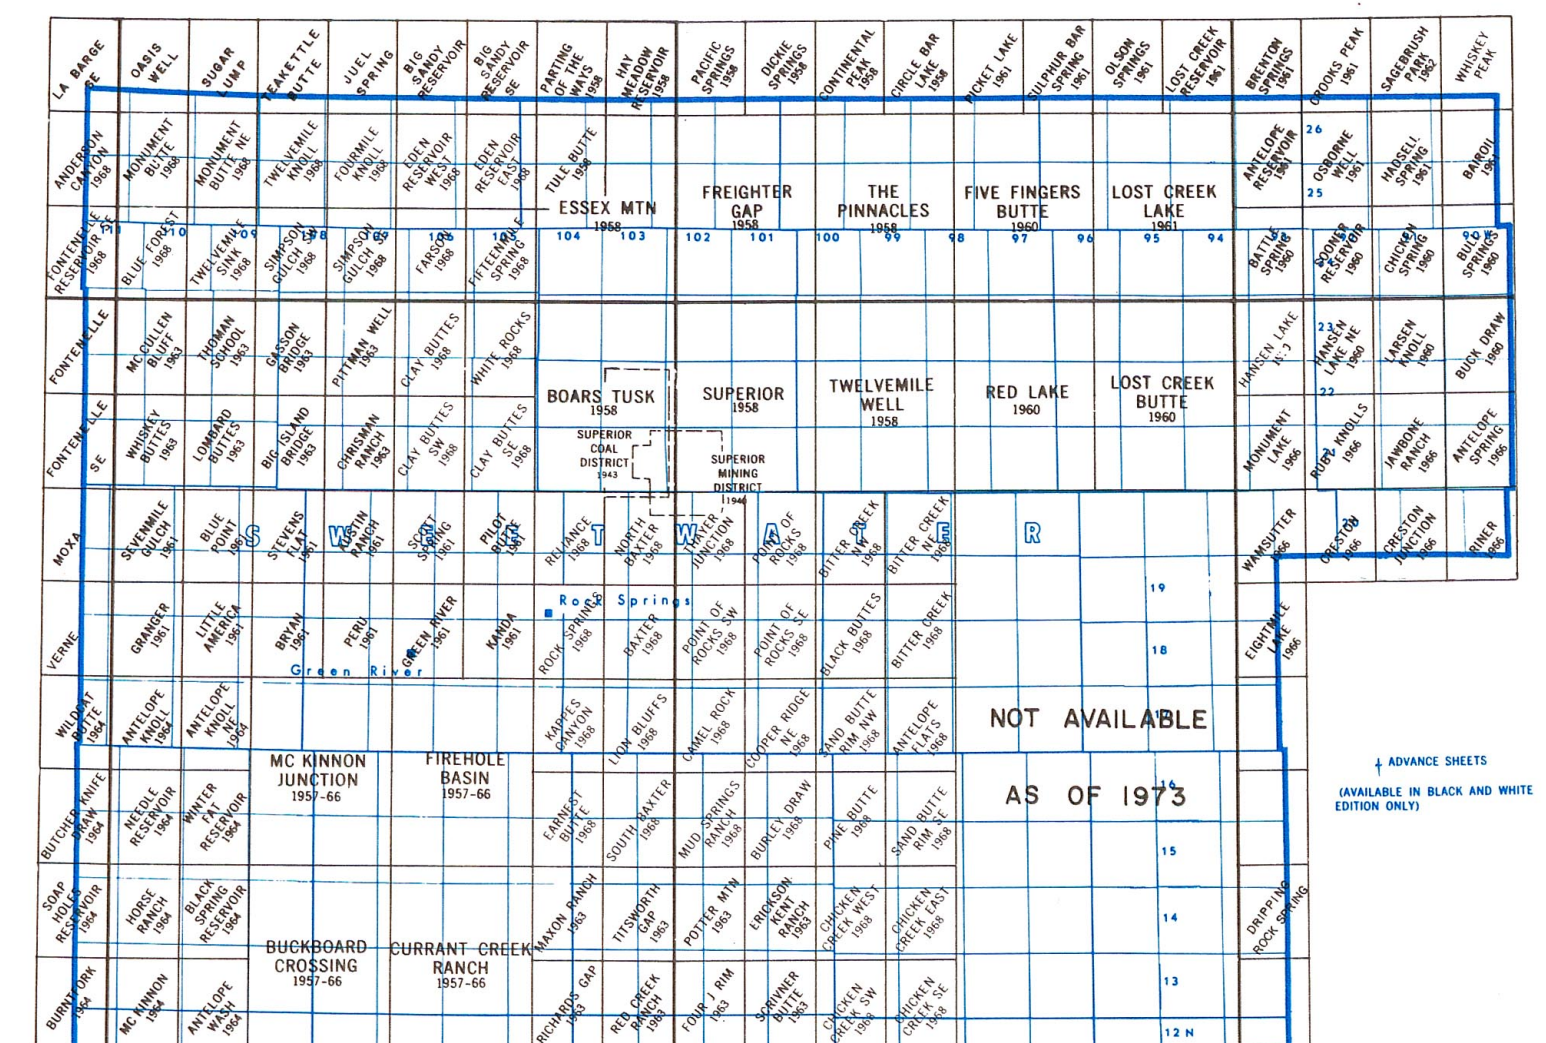 LA BARGE
SE
OASIS
WELL
SUGAR
LUMP
TEAKETTLE
BUTTE
JUEL
SPRING
BIG
SANDY
RESERVOIR
BIG
SANDY
RESERVOIR
SE
PARTING
OF THE
WAYS
1958
HAY
MEADOW
RESERVOIR
1958
PACIFIC
SPRINGS
1958
DICKIE
SPRINGS
1958
CONTINENTAL
PEAK
1958
CIRCLE BAR
LAKE
1958
PICKET LAKE
1961
SULPHUR BAR
SPRING
1961
OLSON
SPRINGS
1961
LOST CREEK
RESERVOIR
1961
BRENTON
SPRINGS
1961
CROOKS PEAK
1961
SAGEBRUSH
PARK
1962
WHISKEY
PEAK
ANDERSON
CANYON
1968
MONUMENT
BUTTE
1968
MONUMENT
BUTTE NE
1968
TWELVEMILE
KNOLL
1968
FOURMILE
KNOLL
1968
EDEN
RESERVOIR
WEST
1968
EDEN
RESERVOIR
EAST
1968
TULE BUTTE
1958
ESSEX MTN
1958
FREIGHTER
GAP
1958
THE
PINNACLES
1958
FIVE FINGERS
BUTTE
1960
LOST CREEK
LAKE
1961
ANTELOPE
RESERVOIR
1961
26
OSBORNE
WELL
1961
25
HADSELL
SPRING
1961
BAIROIL
1961
FONTENELLE
RESERVOIR SE
1968
BLUE FOREST
1968
TWELVEMILE
SINK
1968
SIMPSON
GULCH SW
1968
SIMPSON
GULCH SE
1968
FARSON
1968
FIFTEENMILE
SPRING
1968
110
109
108
106
105
104
103
102
101
100
99
98
97
96
95
94
90 W
BATTLE
SPRING
1960
SOONER
RESERVOIR
1960
CHICKEN
SPRING
1960
BULL
SPRINGS
1960
FONTENELLE
MC CULLEN
BLUFF
1963
THOMAN
SCHOOL
1963
GASSON
BRIDGE
1963
PITTMAN WELL
1963
CLAY BUTTES
1968
WHITE ROCKS
1968
BOARS TUSK
1958
SUPERIOR
1958
TWELVEMILE
WELL
1958
RED LAKE
1960
LOST CREEK
BUTTE
1960
HANSEN LAKE
23
HANSEN
LAKE NE
1960
22
LARSEN
KNOLL
1960
BUCK DRAW
1960
FONTENELLE
SE
WHISKEY
BUTTES
1963
LOMBARD
BUTTES
1963
BIG ISLAND
BRIDGE
1963
CHRISMAN
RANCH
1963
CLAY BUTTES
SW
1968
CLAY BUTTES
SE
1968
SUPERIOR
COAL
DISTRICT
1943
SUPERIOR
MINING
DISTRICT
MONUMENT
LAKE
1966
RUBY KNOLLS
1966
JAWBONE
RANCH
1966
ANTELOPE
SPRING
1966
MOXA
SEVENMILE
GULCH
1961
BLUE
POINT
1961
STEVENS
FLAT
1961
AUSTIN
RANCH
1961
SCOTT
SPRING
1961
PILOT
BUTTE
1961
RELIANCE
1968
NORTH
BAXTER
1968
THAYER
JUNCTION
1968
POINT OF
ROCKS
1968
BITTER CREEK
NW
1968
BITTER CREEK
NE
1968
SWEETWATER
WAMSUTTER
1966
CRESTON
1966
CRESTON
JUNCTION
1966
RINER
1966
VERNE
GRANGER
1961
LITTLE
AMERICA
1961
BRYAN
1961
PERU
1961
GREEN RIVER
1961
KANDA
1961
ROCK SPRINGS
1968
BAXTER
1968
POINT OF
ROCKS SW
1968
POINT OF
ROCKS SE
1968
BLACK BUTTES
1968
BITTER CREEK
1968
Rock Springs
Green River
19
18
EIGHTMILE
LAKE
1966
WILDCAT
BUTTE
1964
ANTELOPE
KNOLL
1964
ANTELOPE
KNOLL
NE
1964
KAPPES
CANYON
1968
LION BLUFFS
1968
CAMEL ROCK
1968
COOPER RIDGE
NE
1968
SAND BUTTE
RIM NW
1968
ANTELOPE
FLATS
1968
NOT AVAILABLE
17
MC KINNON
JUNCTION
1957-66
FIREHOLE
BASIN
1957-66
AS OF 1973
16
ADVANCE SHEETS
(AVAILABLE IN BLACK AND WHITE
EDITION ONLY)
BUTCHER KNIFE
DRAW
1964
NEEDLE
RESERVOIR
1964
WINTER
FAT
RESERVOIR
1964
EARNEST
BUTTE
1968
SOUTH BAXTER
1968
MUD SPRINGS
RANCH
1968
BURLEY DRAW
1968
PINE BUTTE
1968
SAND BUTTE
RIM SE
1968
15
SOAP
HOLES
RESERVOIR
1964
HORSE
RANCH
1964
BLACK
SPRING
RESERVOIR
1964
BUCKBOARD
CROSSING
1957-66
CURRANT CREEK
RANCH
1957-66
MAXON RANCH
1963
TITSWORTH
GAP
1963
POTTER MTN
1963
ERICKSON-
KENT
RANCH
1963
CHICKEN
CREEK WEST
1968
CHICKEN
CREEK EAST
1968
14
DRIPPING
ROCK SPRING
BURNTFORK
1964
MC KINNON
1964
ANTELOPE
WASH
1964
RICHARDS GAP
1963
RED CREEK
RANCH
1963
FOUR J RIM
1963
SCRIVNER
BUTTE
1963
CHICKEN
CREEK SW
1968
CHICKEN
CREEK SE
1968
13
12 N